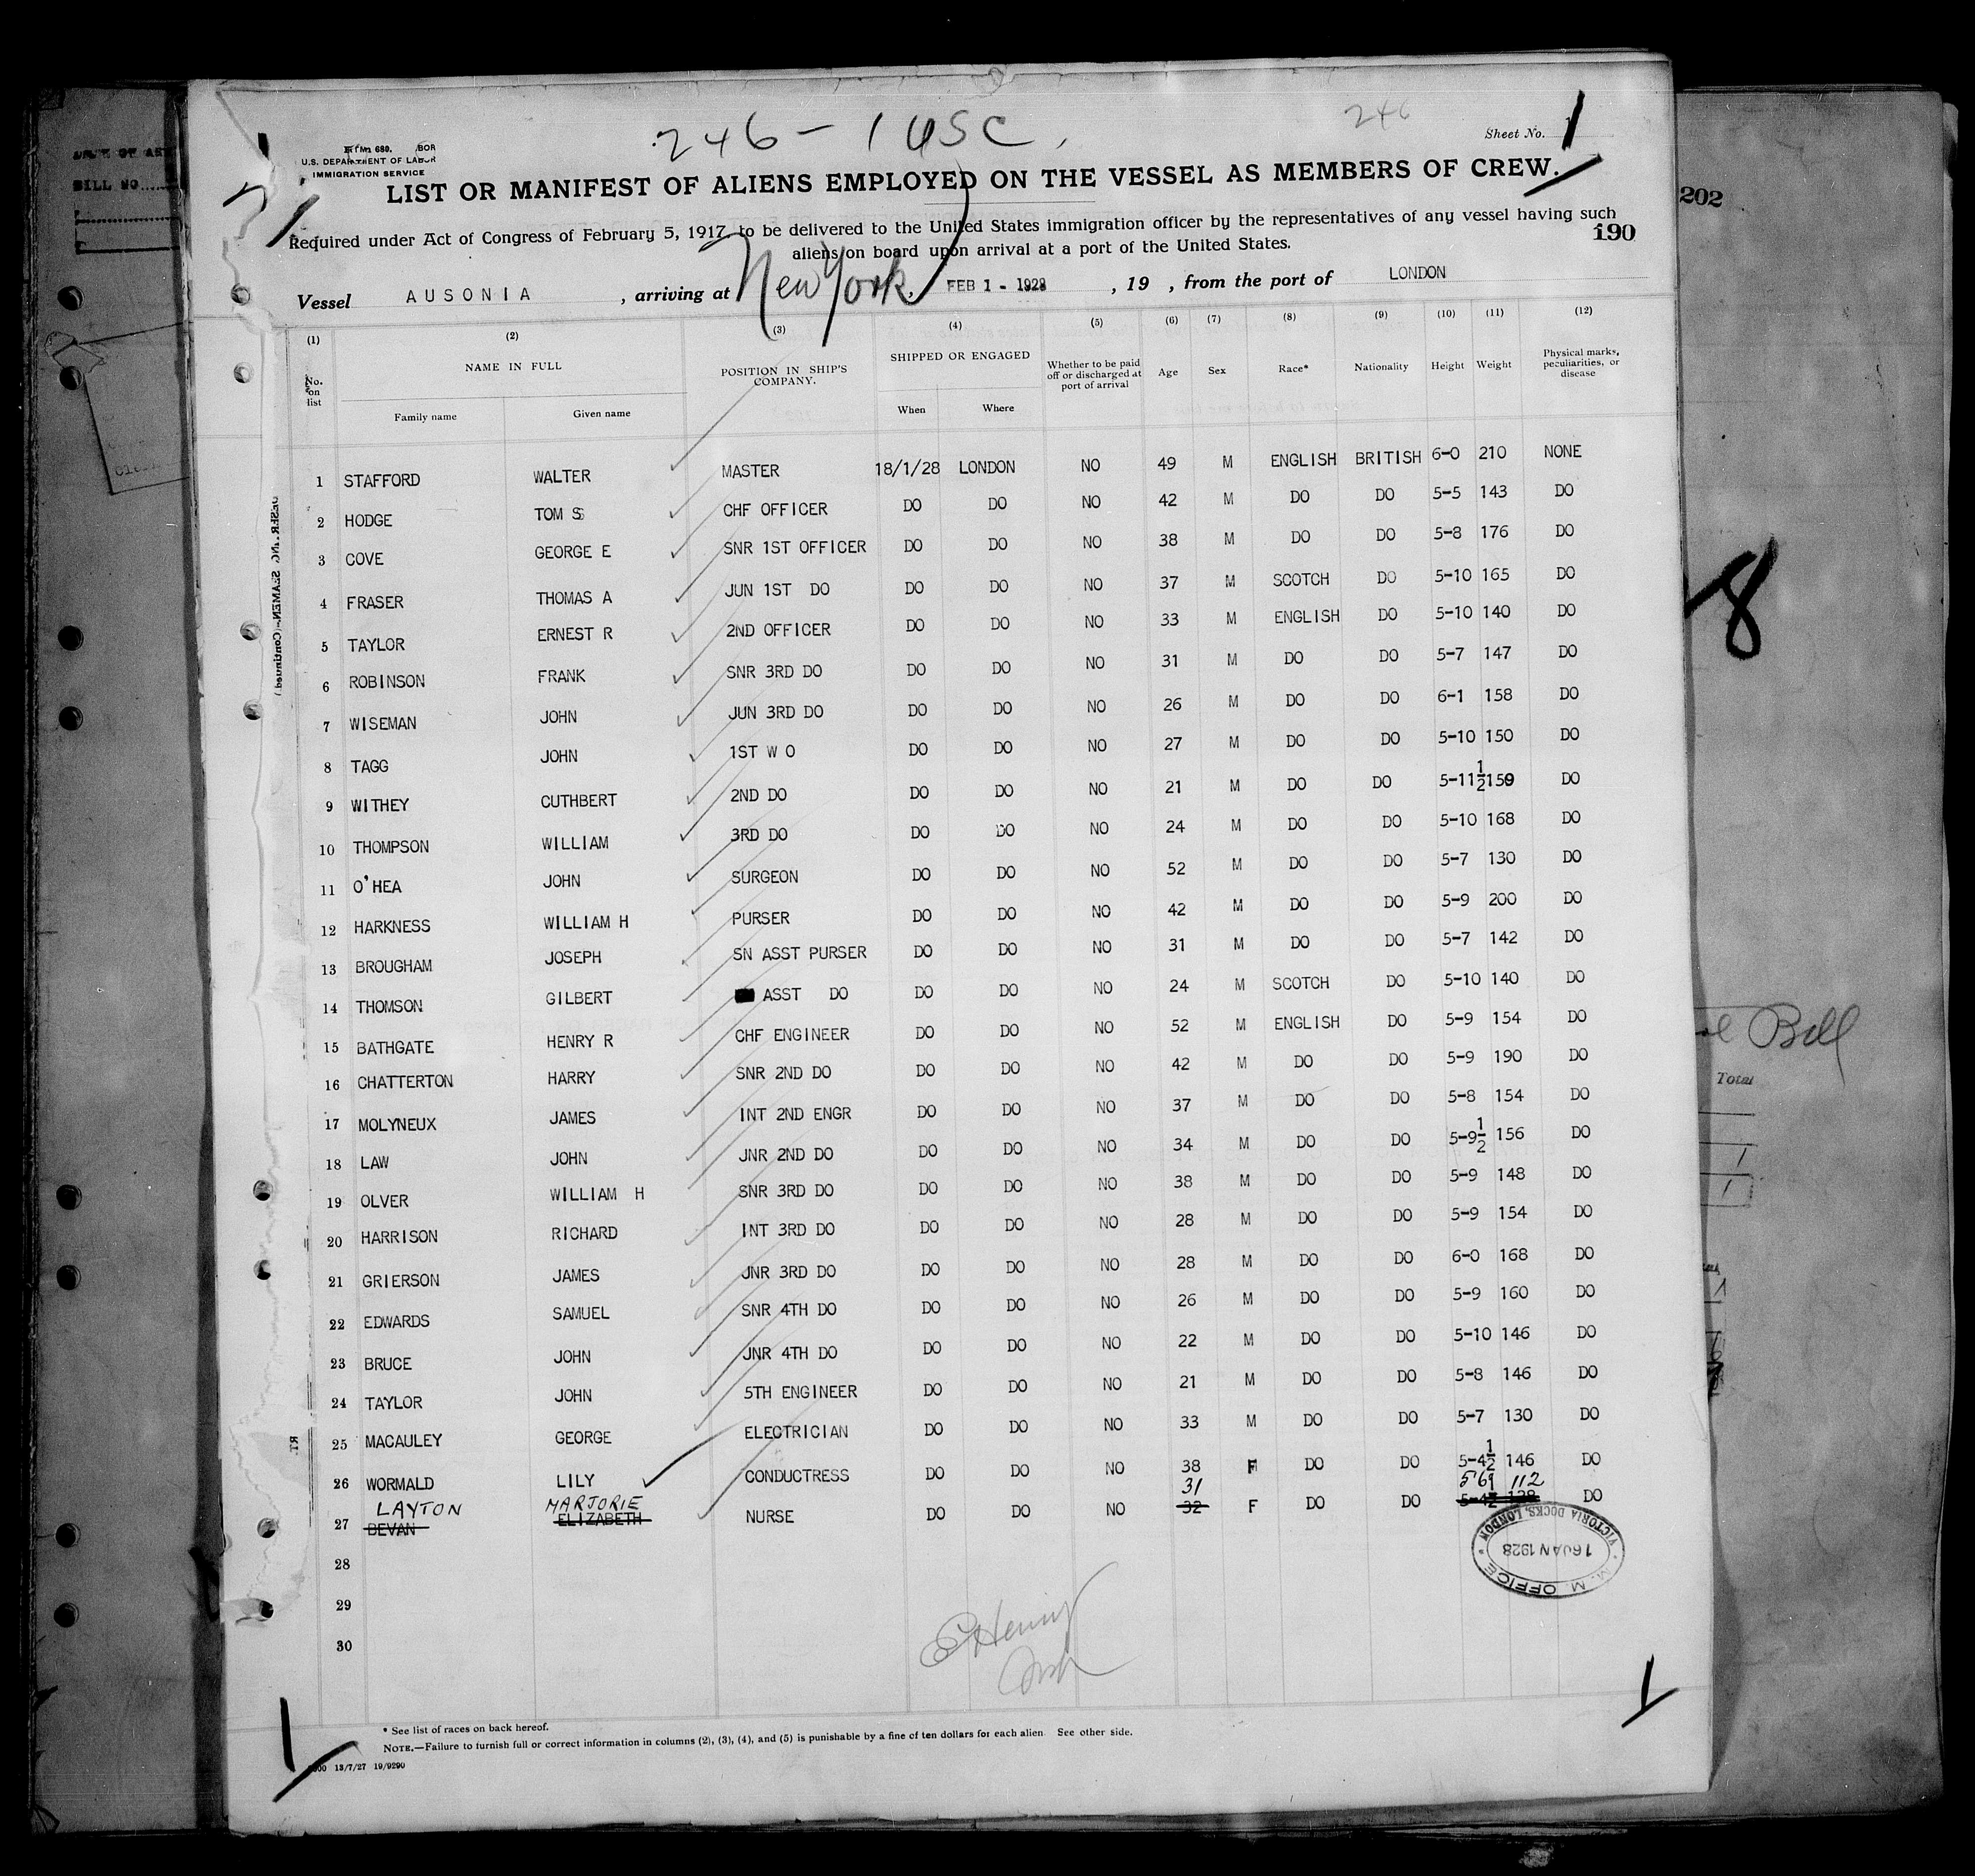 246 - 1 USC.
246
Sheet No. 1
U.S. DEPARTMENT OF LABOR
IMMIGRATION SERVICE
LIST OR MANIFEST OF ALIENS EMPLOYED ON THE VESSEL AS MEMBERS OF CREW.
Required under Act of Congress of February 5, 1917, to be delivered to the United States immigration officer by the representatives of any vessel having such
aliens on board upon arrival at a port of the United States.
190
202
Vessel AUSONIA , arriving at New York, FEB 1 - 1928 , 19 , from the port of LONDON
(1) (2) (3) (4) (5) (6) (7) (8) (9) (10) (11) (12)
No. on list NAME IN FULL POSITION IN SHIP'S COMPANY. SHIPPED OR ENGAGED Whether to be paid off or discharged at port of arrival Age Sex Race* Nationality Height Weight Physical marks, peculiarities, or disease
Family name Given name When Where
1 STAFFORD WALTER MASTER 18/1/28 LONDON NO 49 M ENGLISH BRITISH 6-0 210 NONE
2 HODGE TOM S CHF OFFICER DO DO NO 42 M DO DO 5-5 143 DO
3 COVE GEORGE E SNR 1ST OFFICER DO DO NO 38 M DO DO 5-8 176 DO
4 FRASER THOMAS A JUN 1ST DO DO DO NO 37 M SCOTCH DO 5-10 165 DO
5 TAYLOR ERNEST R 2ND OFFICER DO DO NO 33 M ENGLISH DO 5-10 140 DO
6 ROBINSON FRANK SNR 3RD DO DO DO NO 31 M DO DO 5-7 147 DO
7 WISEMAN JOHN JUN 3RD DO DO DO NO 26 M DO DO 6-1 158 DO
8 TAGG JOHN 1ST W O DO DO NO 27 M DO DO 5-10 150 DO
9 WITHEY CUTHBERT 2ND DO DO DO NO 21 M DO DO 5-11½ 159 DO
10 THOMPSON WILLIAM 3RD DO DO DO NO 24 M DO DO 5-10 168 DO
11 O'HEA JOHN SURGEON DO DO NO 52 M DO DO 5-7 130 DO
12 HARKNESS WILLIAM H PURSER DO DO NO 42 M DO DO 5-9 200 DO
13 BROUGHAM JOSEPH SN ASST PURSER DO DO NO 31 M DO DO 5-7 142 DO
14 THOMSON GILBERT ASST DO DO DO NO 24 M SCOTCH DO 5-10 140 DO
15 BATHGATE HENRY R CHF ENGINEER DO DO NO 52 M ENGLISH DO 5-9 154 DO
16 CHATTERTON HARRY SNR 2ND DO DO DO NO 42 M DO DO 5-9 190 DO
17 MOLYNEUX JAMES INT 2ND ENGR DO DO NO 37 M DO DO 5-8 154 DO
18 LAW JOHN JNR 2ND DO DO DO NO 34 M DO DO 5-9½ 156 DO
19 OLVER WILLIAM H SNR 3RD DO DO DO NO 38 M DO DO 5-9 148 DO
20 HARRISON RICHARD INT 3RD DO DO DO NO 28 M DO DO 5-9 154 DO
21 GRIERSON JAMES JNR 3RD DO DO DO NO 28 M DO DO 6-0 168 DO
22 EDWARDS SAMUEL SNR 4TH DO DO DO NO 26 M DO DO 5-9 160 DO
23 BRUCE JOHN JNR 4TH DO DO DO NO 22 M DO DO 5-10 146 DO
24 TAYLOR JOHN 5TH ENGINEER DO DO NO 21 M DO DO 5-8 146 DO
25 MACAULEY GEORGE ELECTRICIAN DO DO NO 33 M DO DO 5-7 130 DO
26 WORMALD LILY CONDUCTRESS DO DO NO 38 F DO DO 5-4½ 146 DO
LAYTON MARJORIE 31 112
27 BEVAN ELIZABETH NURSE DO DO NO 32 F DO DO 5-4½ 128 DO
28
29
30
M. M. OFFICE
16 JAN 1928
VICTORIA DOCKS, LONDON
* See list of races on back hereof.
NOTE.—Failure to furnish full or correct information in columns (2), (3), (4), and (5) is punishable by a fine of ten dollars for each alien See other side.
13/7/27 19/9290
8
Bill
Total
BILL NO